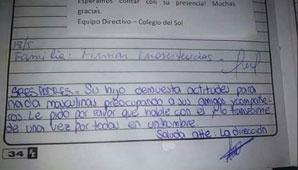 Esperamos contar con su presencia! Muchas
gracias.
Equipo Directivo - Colegio del Sol
18/5
Familia: Firmar
SRES PADRES - Su hijo demuestra actitudes para
nada masculinas preocupando a sus amigos y compañe-
ros. Le pido por favor que hable con el p/lo transforme
de una vez por todas en un hombre.
Saluda atte. La dirección
34